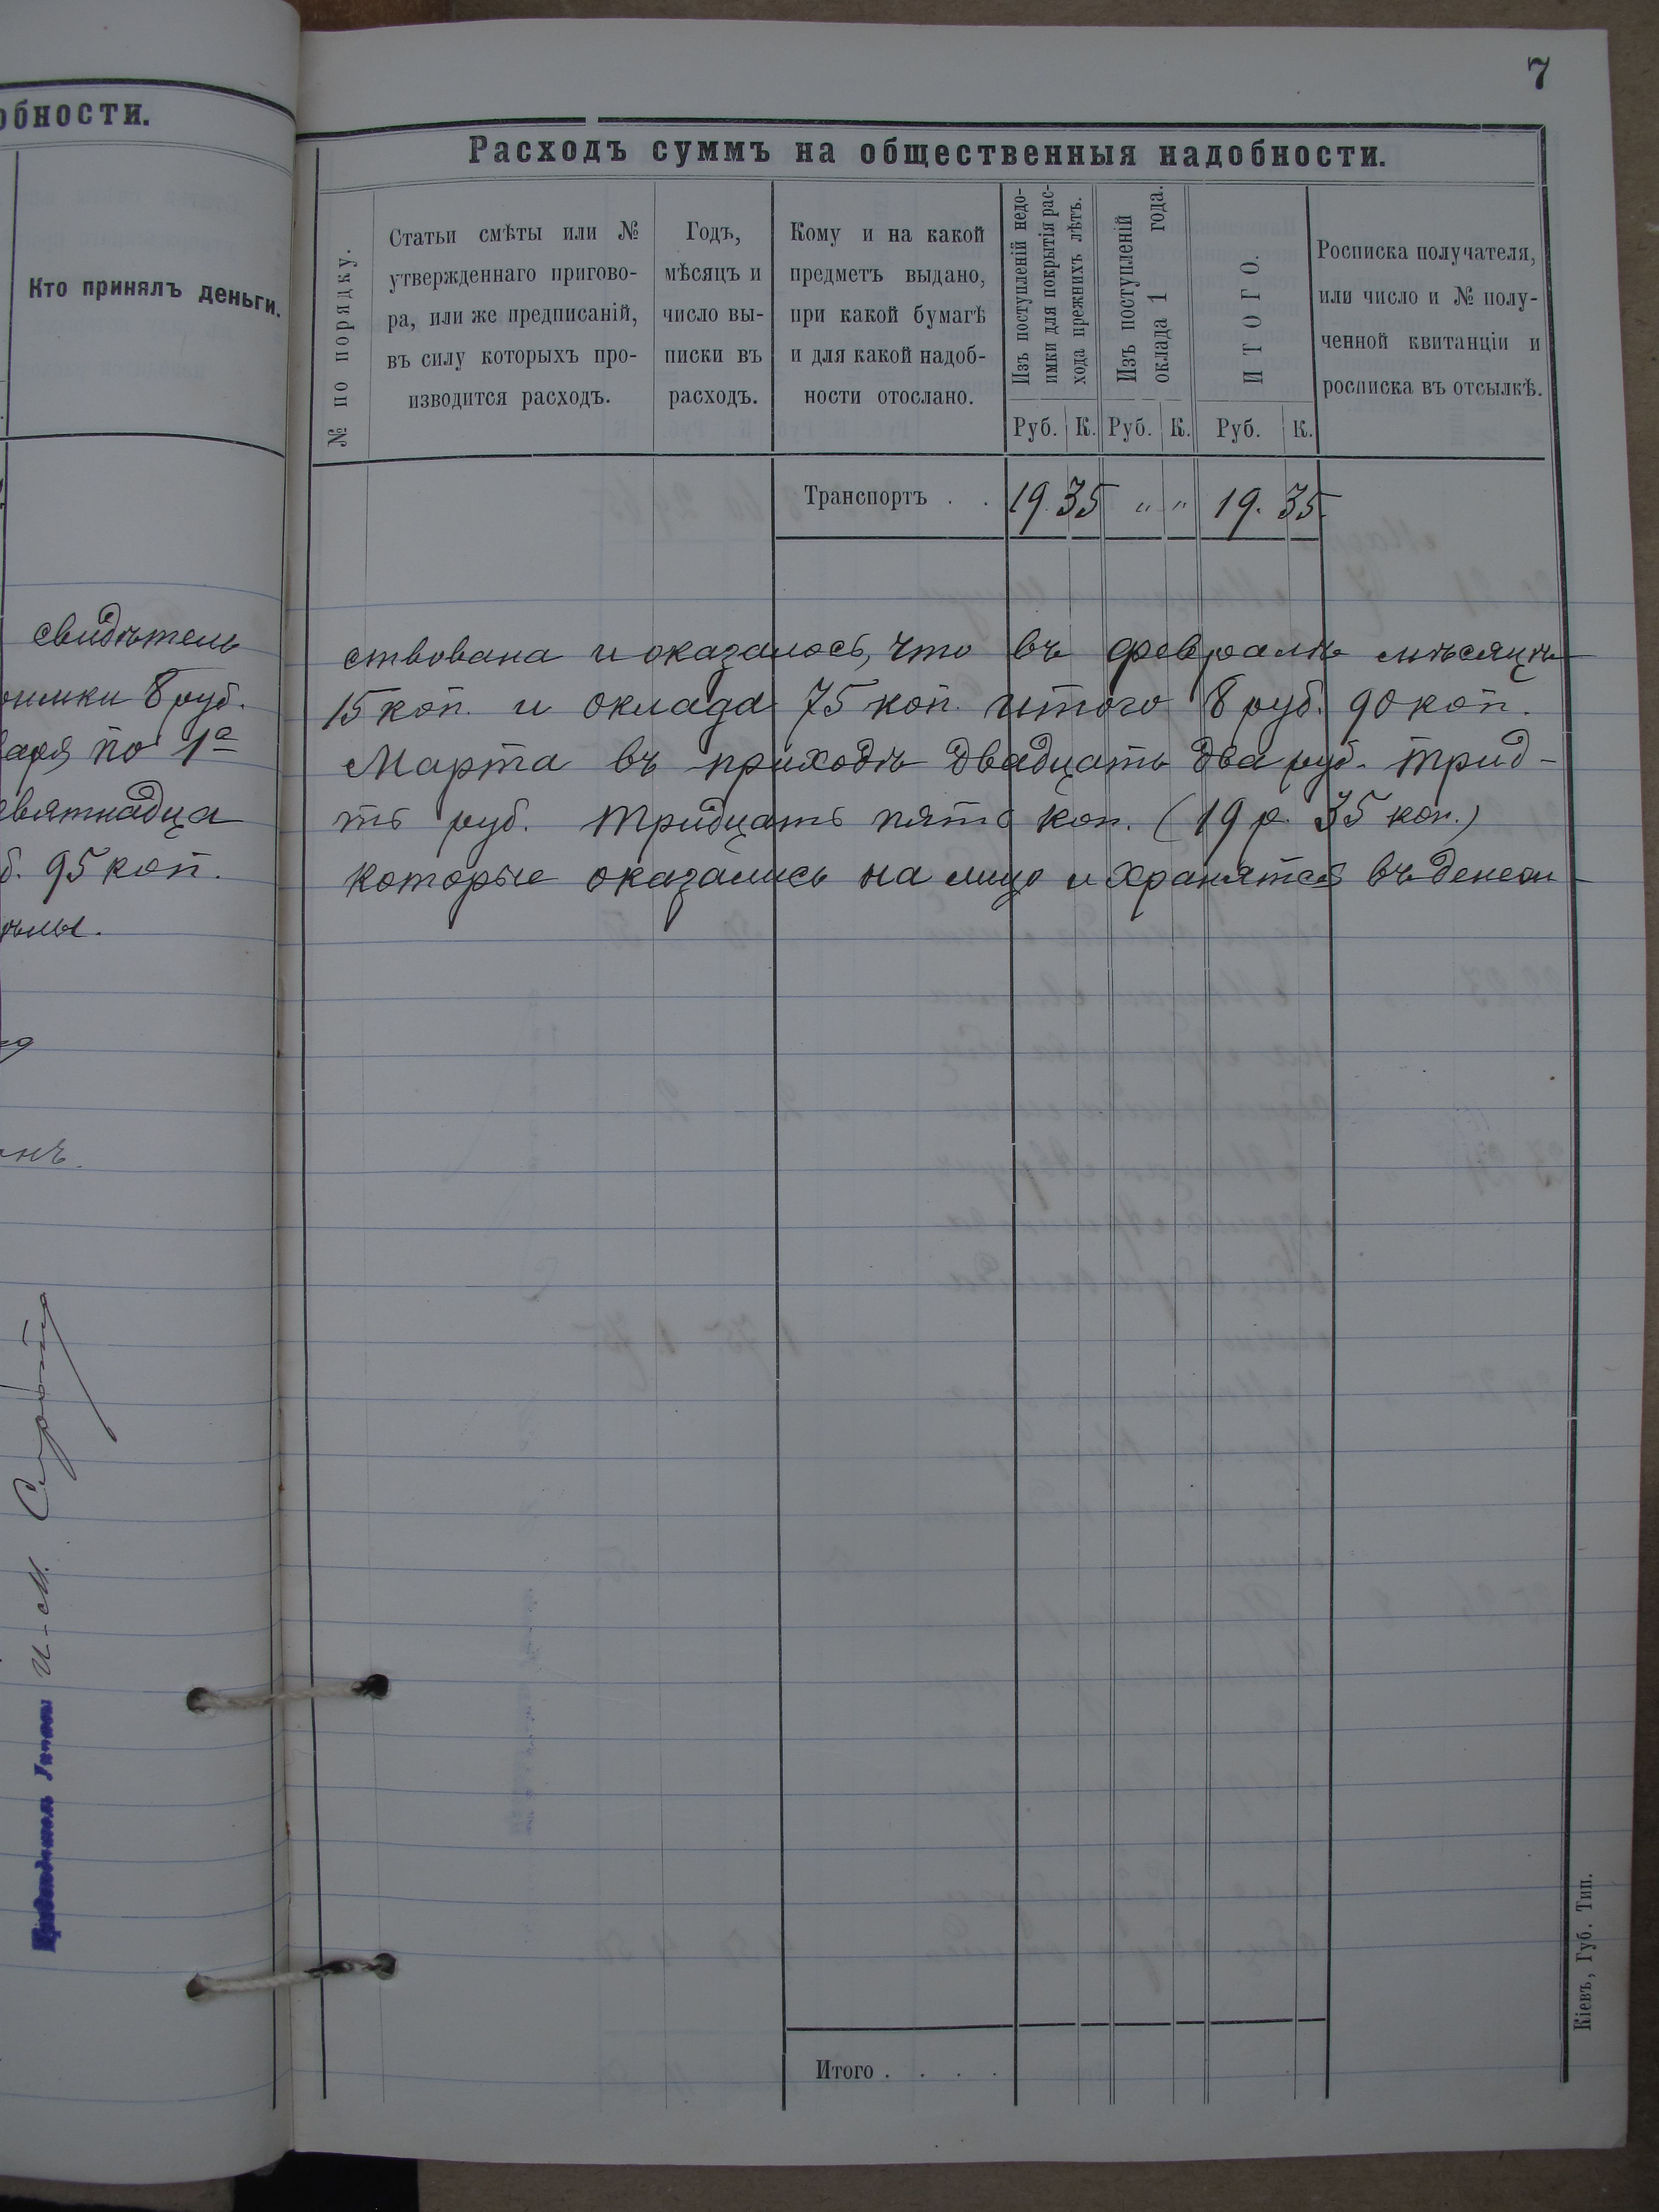 обности.
Кто принялъ деньги.
свидѣтель
8 руб.
по 1а
б. 95 коп.
И. М.
7
Расходъ суммъ на общественныя надобности.
№ по порядку.
Статьи смѣты или №
утвержденнаго пригово-
ра, или же предписаній,
въ силу которыхъ про-
изводится расходъ.
Годъ,
мѣсяцъ и
число вы-
писки въ
расходъ.
Кому и на какой
предметъ выдано,
при какой бумагѣ
и для какой надоб-
ности отослано.
Изъ поступленій недо-
имки для покрытія рас-
хода прежнихъ лѣтъ.
Изъ поступленій
оклада 1 года.
ИТОГО.
Росписка получателя,
или число и № полу-
ченной квитанціи и
росписка въ отсылкѣ.
Руб. К. Руб. К. Руб. К.
Транспортъ . . 19. 35 " " 19. 35.
ствована и оказалось, что въ февралѣ мѣсяцѣ
15 коп. и оклада 75 коп. итого 8 руб. 90 коп.
Марта въ приходѣ двадцать два руб. трид-
ть руб. тридцать пять коп. (19 р. 35 коп.)
которые оказались на лицо и хранятся въ денеж-
Итого . . . .
Кіевъ, Губ. Тип.